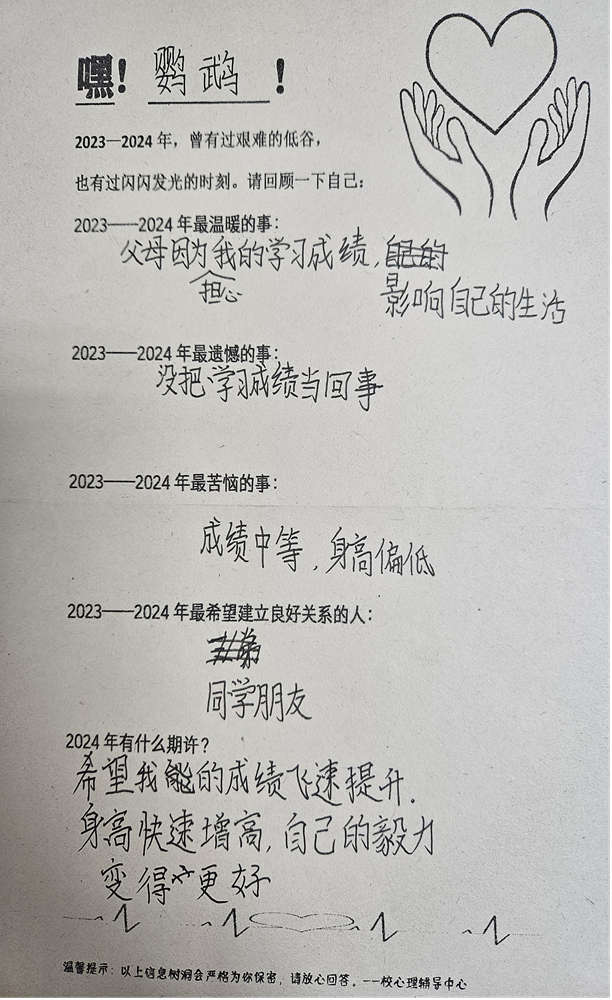 嘿！鹦鹉！
2023—2024 年，曾有过艰难的低谷，
也有过闪闪发光的时刻。请回顾一下自己：
2023——2024 年最温暖的事：
父母因为担心我的学习成绩，
影响自己的生活
2023——2024 年最遗憾的事：
没把学习成绩当回事
2023——2024 年最苦恼的事：
成绩中等，身高偏低
2023——2024 年最希望建立良好关系的人：
同学朋友
2024 年有什么期许？
希望我能的成绩飞速提升.
身高快速增高,自己的毅力
变得更好
温馨提示：以上信息树洞会严格为你保密，请放心回答。--校心理辅导中心